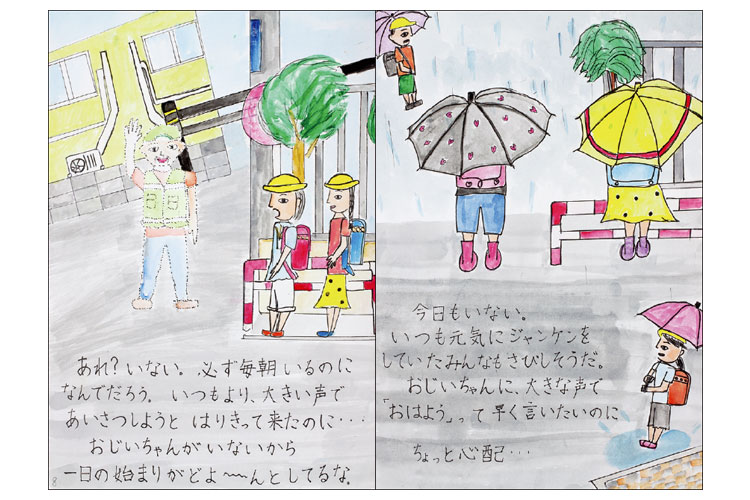 あれ?いない。必ず毎朝いるのに
なんでだろう。いつもより、大きい声で
あいさつしようと はりきって来たのに・・・
おじいちゃんがいないから
一日の始まりがどよ〜〜んとしてるな。
8
今日もいない。
いつも元気にジャンケンを
していたみんなもさびしそうだ。
おじいちゃんに、大きな声で
「おはよう」って早く言いたいのに
ちょっと心配・・・